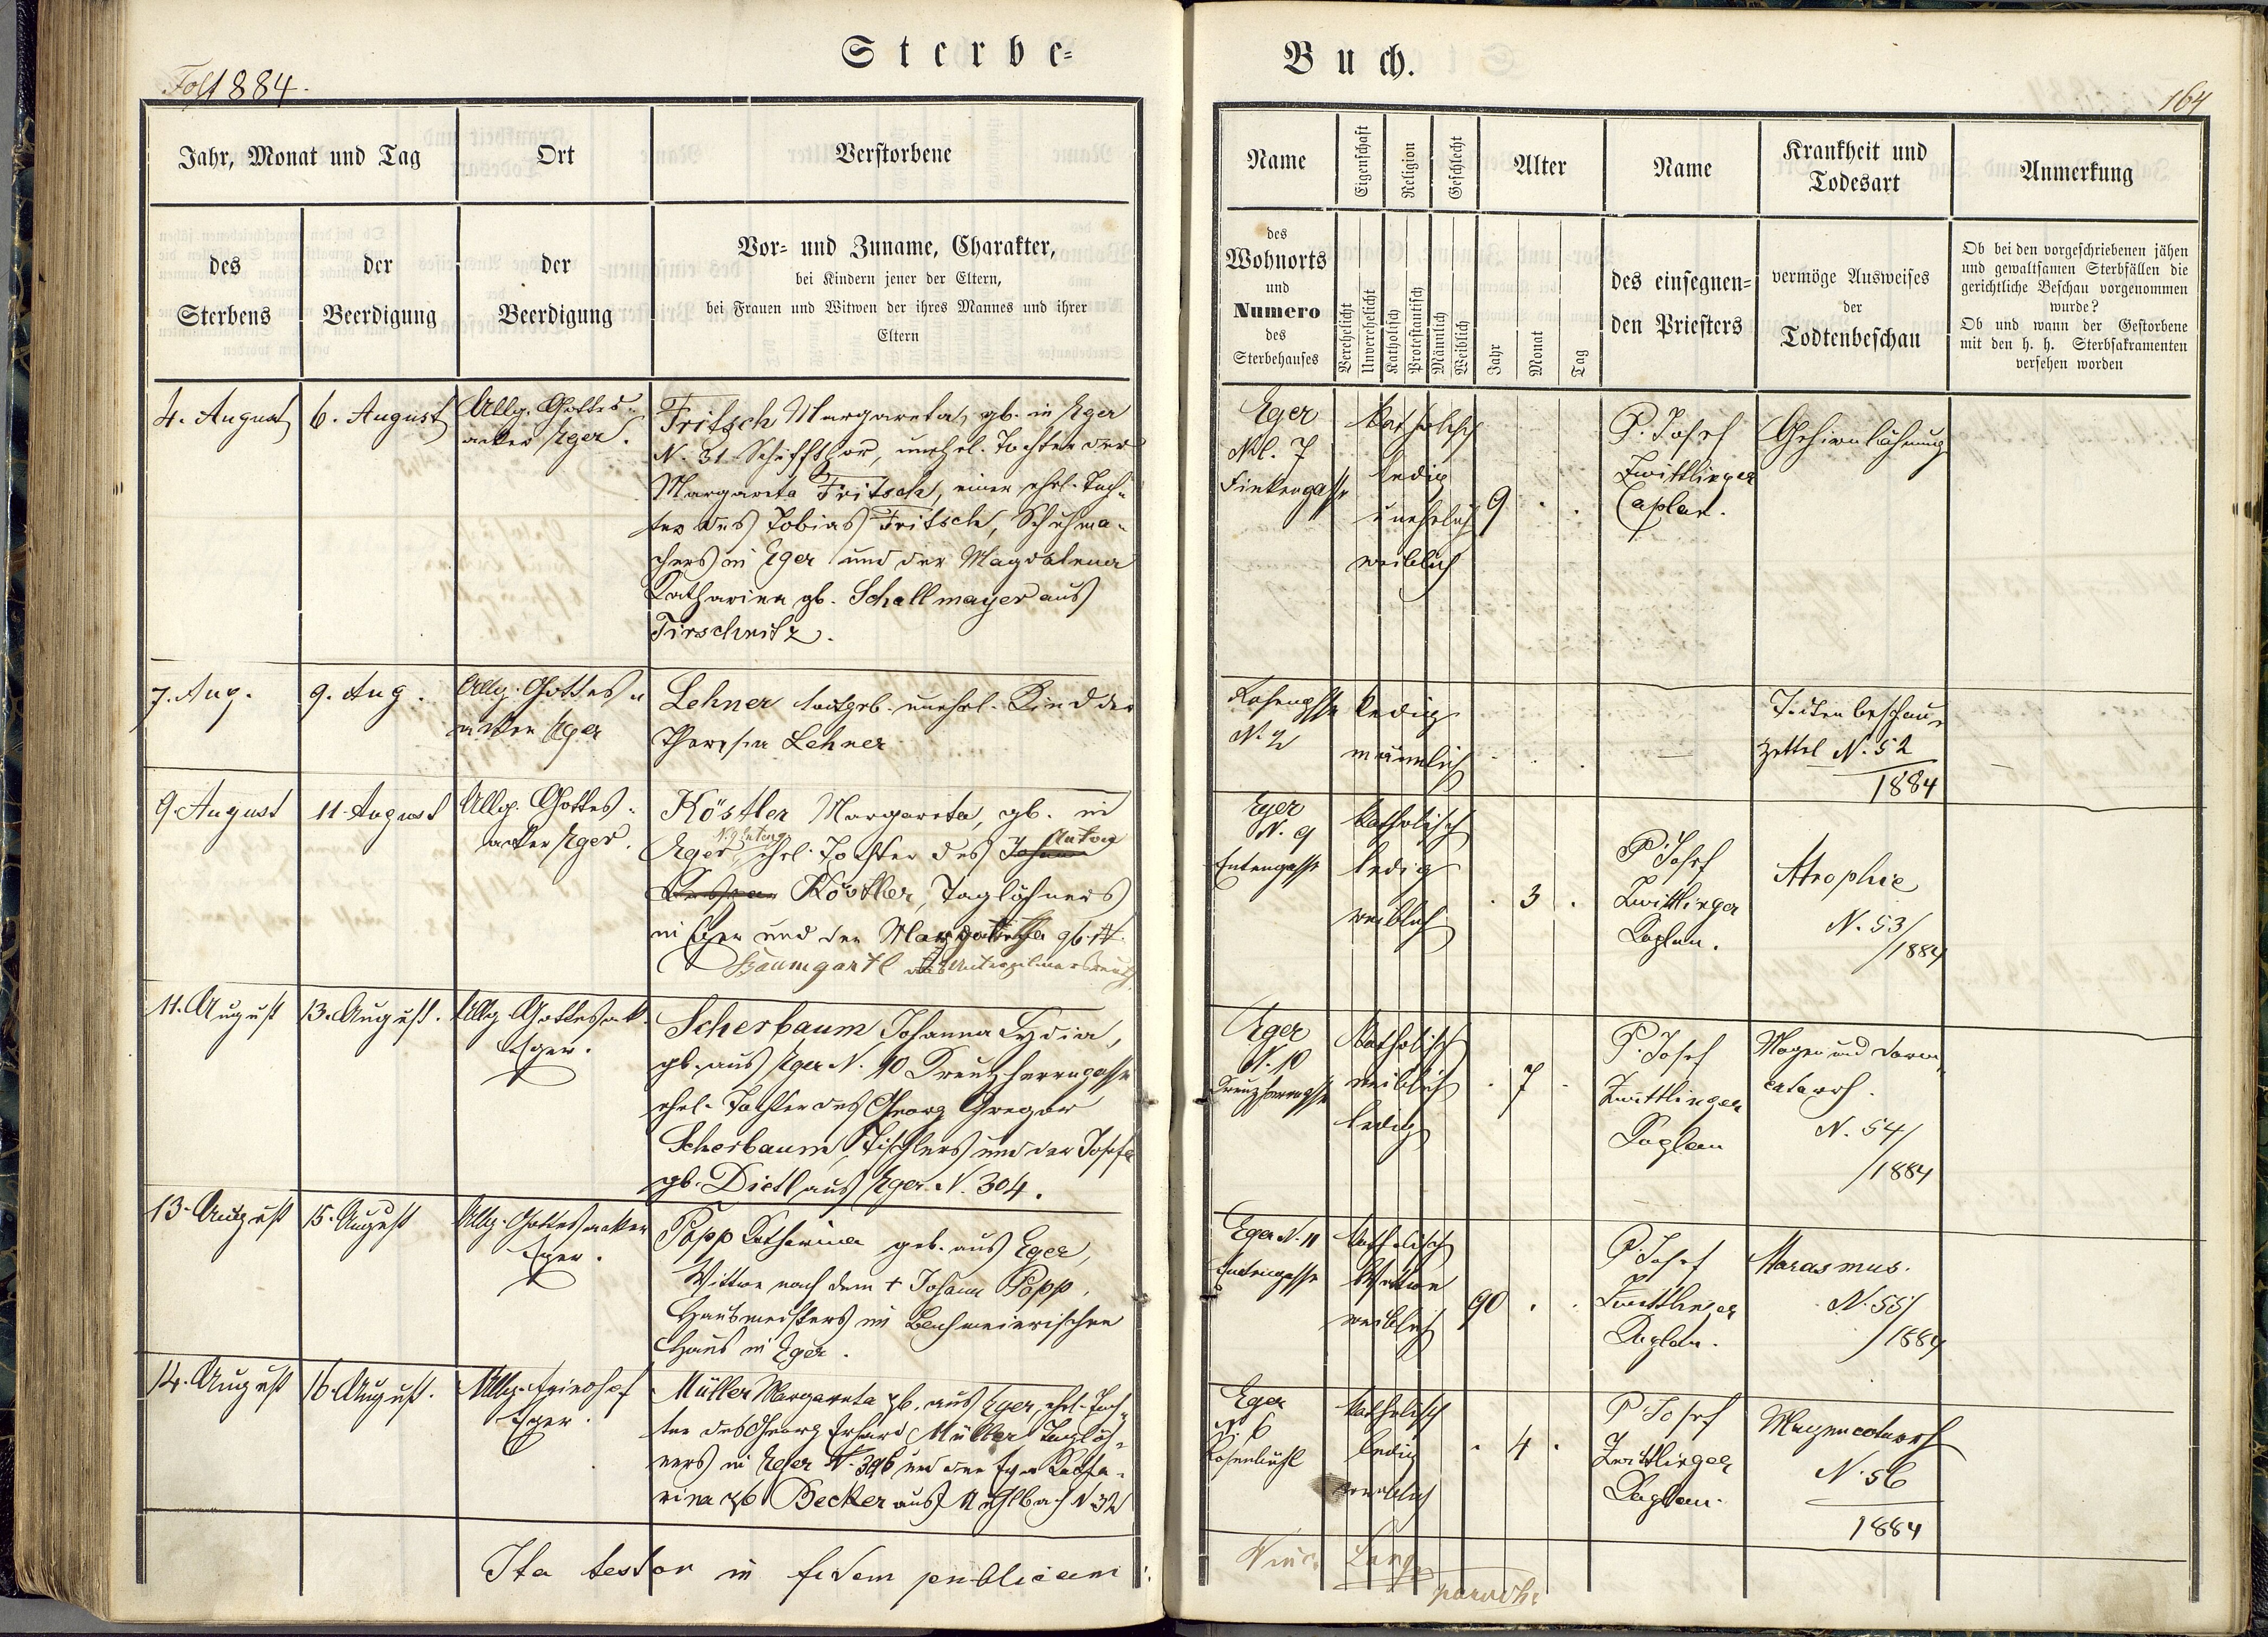 Sterbe=
Buch.
1884.
164
Jahr, Monat und Tag
Ort
Verstorbene
des
Sterbens
der
Beerdigung
der
Beerdigung
Vor= und Zuname, Charakter,
bei Kindern jener der Eltern,
bei Frauen und Witwen der ihres Mannes und ihrer
Eltern
Name
Eigenschaft
Religion
Geschlecht
Alter
Name
Krankheit und
Todesart
Anmerkung
des
Wohnorts
und
Numero
des
Sterbehauses
Verehelicht
Unverehelicht
Katholisch
Protestantisch
Männlich
Weiblich
Jahr
Monat
Tag
des einsegnen=
den Priesters
vermöge Ausweises
der
Todtenbeschau
Ob bei den vorgeschriebenen jähen
und gewaltsamen Sterbfällen die
gerichtliche Beschau vorgenommen
wurde?
Ob und wann der Gestorbene
mit den h. h. Sterbsakramenten
versehen worden
4. August
6. August
Allg. Gottes=
acker Eger.
Fritsch Margareta, gb. in Eger
N. 31 Schiffthor, unehel. Tochter der
Margareta Fritsch, einer ehel. Toch=
ter des Tobias Fritsch, Schuhma=
chers in Eger und der Magdalena
Katharina gb. Schallmayer aus
Tirschnitz.
Eger
N. 7
katholisch
ledig
unehelich
weiblich
9
P. Josef
Zwittlinger
Caplan.
Gehirnlähmung
7. Aug.
9. Aug.
Allg. Gottes=
acker Eger
Lehner todtgeb. unehel. Kind der
Theresia Lehner
Rosengasse
N. 2
ledig
männlich
Todtenbeschau=
zettel N. 52
1884
9 August
11 August
Allg. Gottes=
acker Eger.
Köstler Margareta, gb. in
N. 9 Enteng.
Anton
Eger, ehel. Tochter des Johann
Köstler, Taglöhners
in Eger und der Margaretha gb.
Baumgartl aus
Eger
N. 9
Entengasse
katholisch
ledig
weiblich
3
P. Josef
Zwittlinger
Kaplan.
Atrophie
N. 53/
/1884
11. August
13. August.
Allg. Gottesack.
Eger.
Scherbaum Johanna Lydia,
gb. aus Eger N. 10 Kreuzherrngasse
ehel. Tochter des Georg Gregor
Scherbaum, Tischlers und der Josefa
gb. Dietl aus Eger N. 304.
Eger
N. 10
Kreuzherrngasse
katholisch
weiblich
ledig
7
P. Josef
Zwittlinger
Kaplan
Magen und Darm
catarrh.
N. 54/
/1884
13. August
15. August
Allg. Gottesacker
Eger.
Popp Katharina geb. aus Eger,
Wittwe nach dem + Johann Popp,
Hausmeisters im
Haus in Eger.
Eger N. 11
Entengasse
katholisch
Wittwe
weiblich
90
P. Josef
Zwittlinger
Kaplan.
Marasmus.
N. 55/
/1884
14. August
16. August.
Allg. Friedhof
Eger.
Müller Margareta gb. aus Eger, ehel. Toch=
ter des Georg Erhard Müller Taglöh=
ners in Eger N. 396 und der Eva Katha=
rina gb Becker aus Mühlbach N 32
Eger
N. 6
Rosenbühl
katholisch
ledig
weiblich
4
P. Josef
Zwittlinger
Kaplan.
Magencatarrh
N. 56
1884
Ita testor in fidem publicam
Vinc. Lang
paroch.